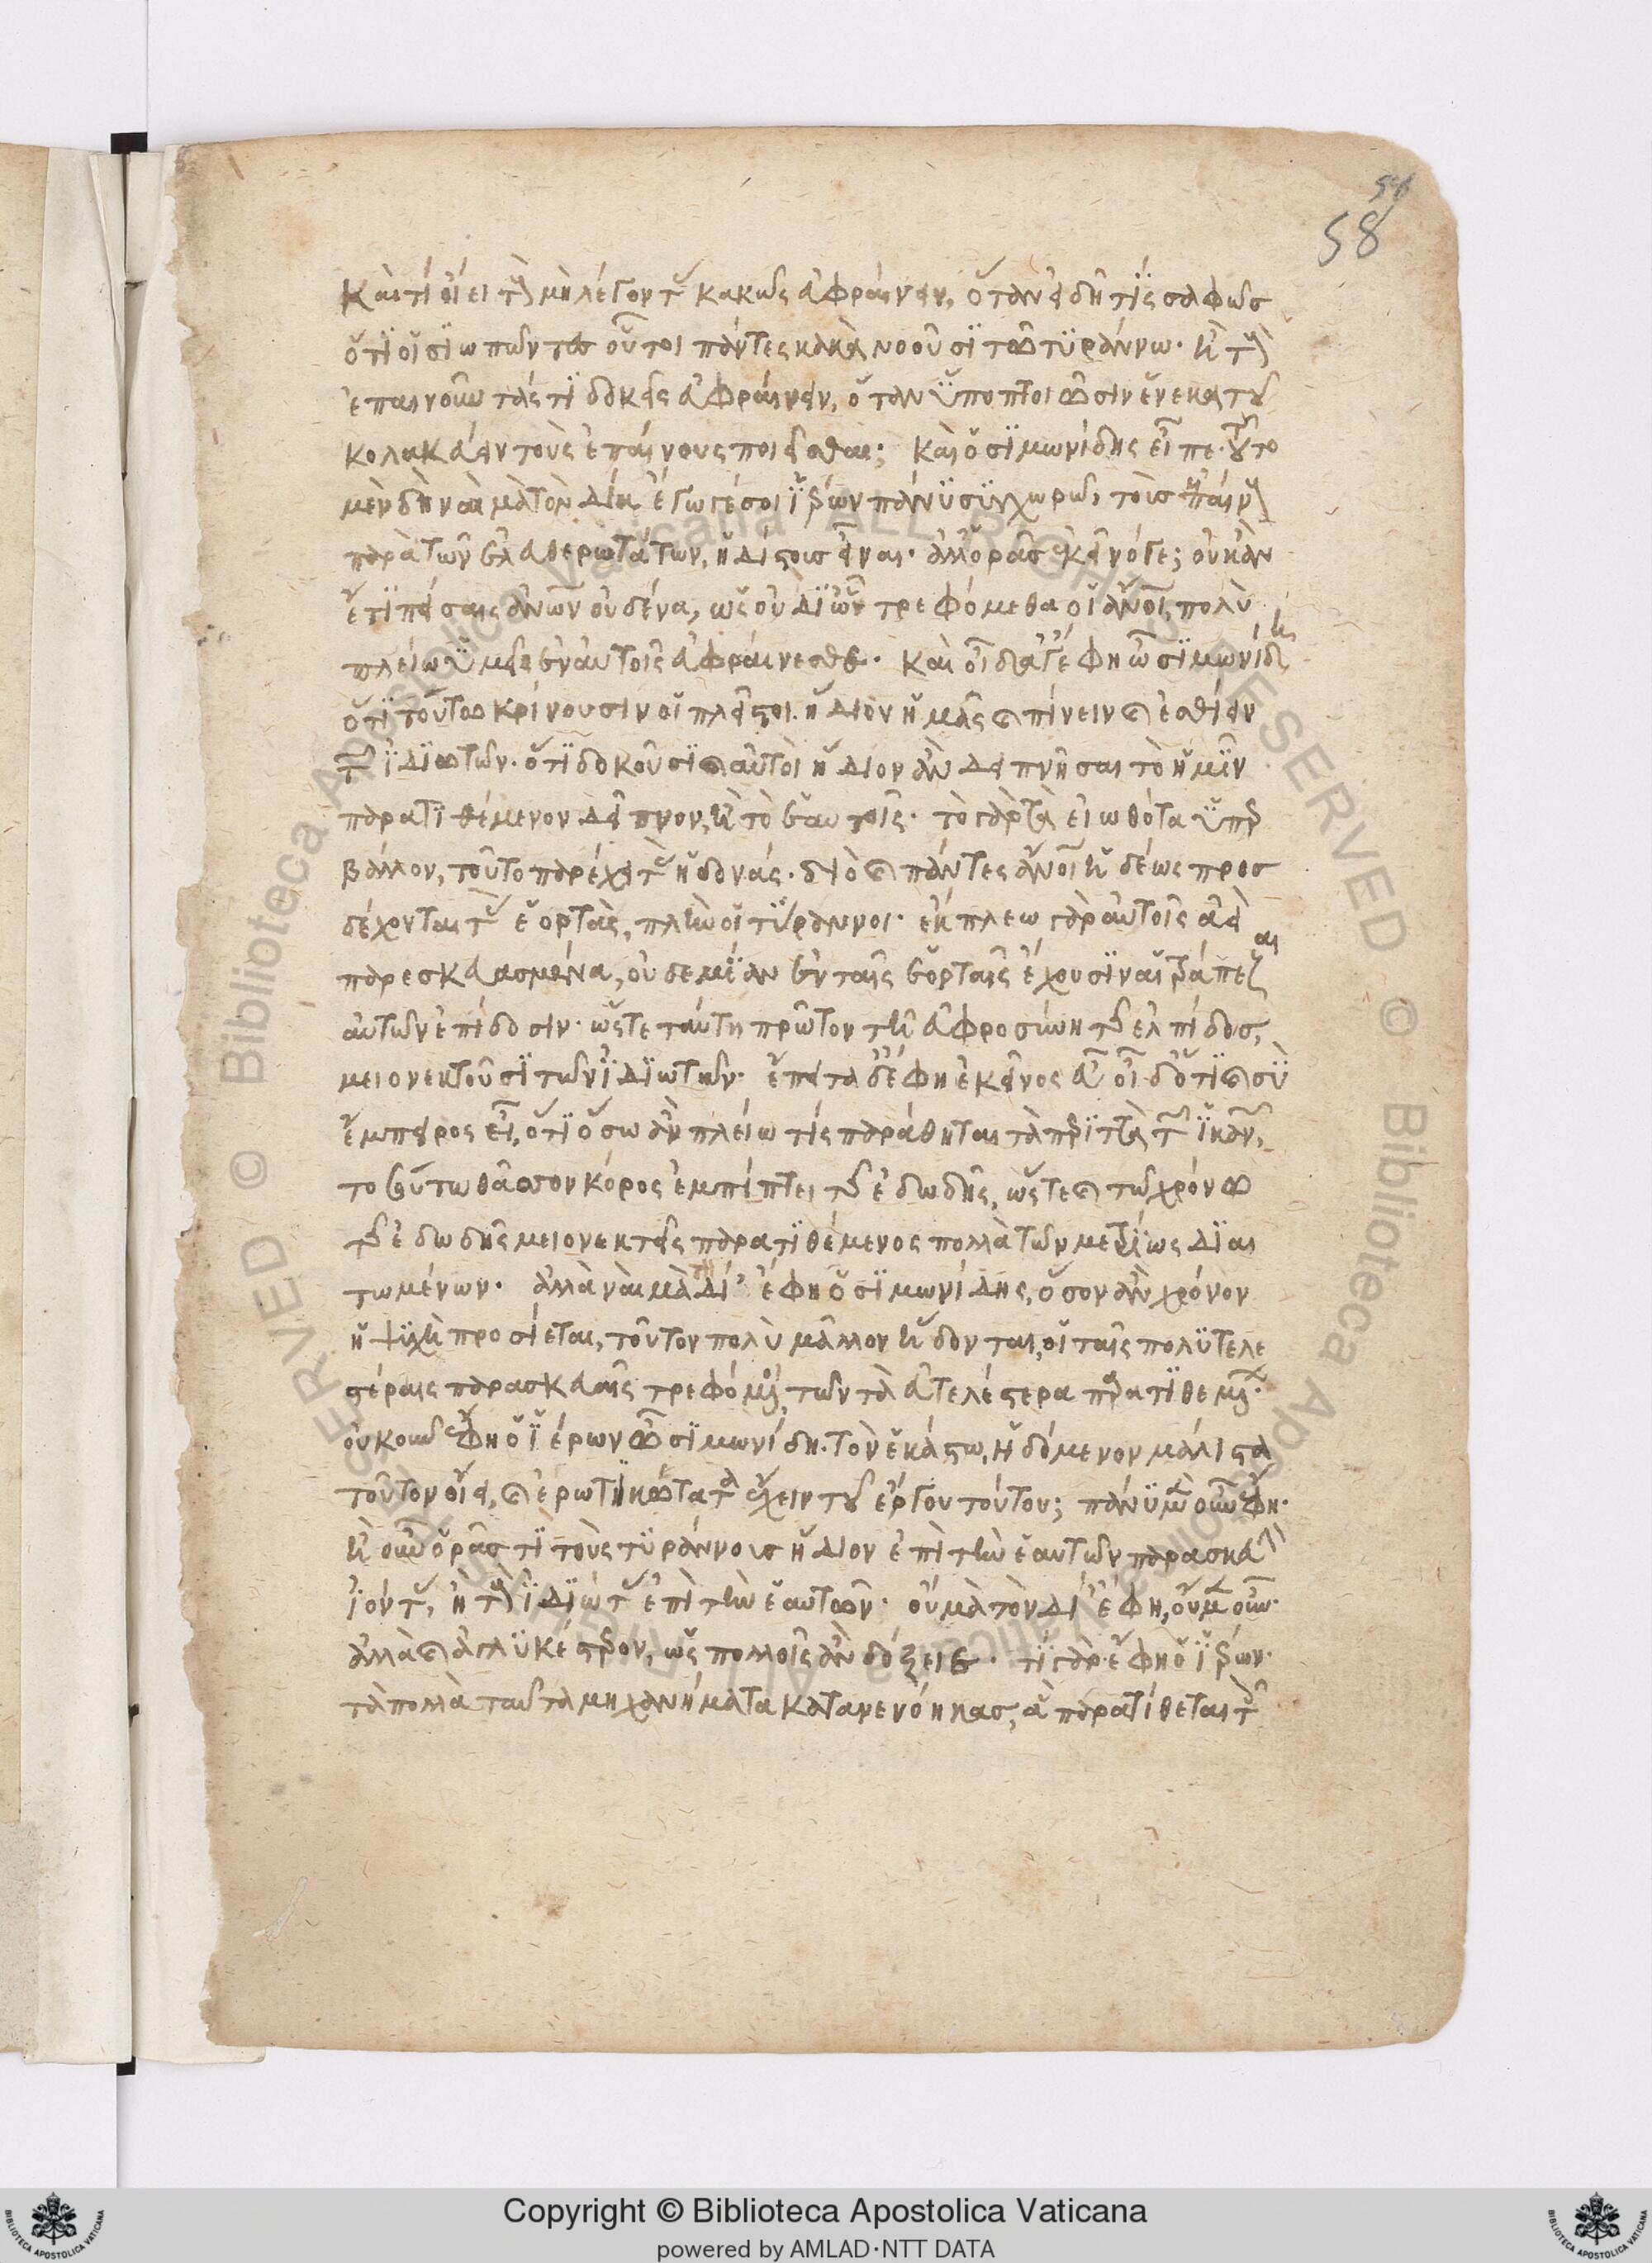 58
58
καὶ τί οἴει τοὺς μὴ λέγοντας κακῶς εὐφραίνειν, ὅταν εἰδῆ τίς σαφῶσ
ὅτι οἱ σιωπῶντες οὗτοι πάντες κακὰ νοοῦσι τῶ τυράννω· ἢ τοὺς
ἐπαινοῦντας τί δοκεῖς εὐφραίνειν, ὅταν ὕποπτοι ὦσιν ἕνεκα τοῦ
κολακεύειν τοὺς ἐπαίνους ποιεῖσθαι; καὶ ὁ σιμωνίδης εἶπε· τοῦτο
μὲν δὴ ναὶ μὰ τὸν Δία ἔγωγέ σοι ἱέρων πάνυ συγχωρῶ, τοὺσ ἐπαίνους
παρὰ τῶν ἐλευθερωτάτων, ἡδίστους εἶναι· ἀλλ' ὁρᾶσ ἐκεῖνό γε; οὐκ ἂν
ἔτι πείσαις ἀνων οὐδένα, ὡς οὐ δι ὧν τρεφόμεθα οἱ ἄνοι, πολὺ
πλείω ὑμεῖς ἐν αὐτοῖς εὐφραίνεσθε. καὶ οἶδά γ' ἔφη ὦ σιμωνίδη
ὅτι τούτω κρίνουσιν οἱ πλεῖστοι. ἥδιον ἡμᾶς καὶ πίνειν καὶ ἐσθίειν
τῶν ἰδιωτῶν. ὅτι δοκοῦσι καὶ αὐτοὶ ἥδιον ἂν δειπνῆσαι τὸ ἡμῖν
παρατιθέμενον δεῖπνον, ἢ τὸ ἑαυτοῖς. τὸ γὰρ τὰ εἰωθότα ὑπερ
βάλλον, τοῦτο παρέχει τὰς ἡδονάς. διὸ καὶ πάντες ἄνοι ἡδέως προσ
δέχονται τὰς ἑορτὰς, πλὴν οἱ τύραννοι. ἔκπλεω γὰρ αὐτοῖς ἀεὶ
παρεσκευασμέναι, οὐδεμίαν ἐν ταῖς ἑορταῖς ἔχουσιν αἱ τράπεζαι
αὐτῶν ἐπίδοσιν. ὥστε ταύτη πρῶτον τῆ εὐφροσύνη τῆς ἐλπίδος,
μειονεκτοῦσι τῶν ἰδιωτῶν. ἔπειτα δ' ἔφη ἐκεῖνος εὖ οἶδ' ὅτι καὶ σὺ
ἔμπειρος εἶ, ὅτι ὅσω ἂν πλείω τίς παράθηται τὰ περιττὰ τῶν ἱκανῶν,
τοσούτω θᾶσσον κόρος ἐμπίπτει τῆς ἐδωδῆς, ὥστε καὶ τῶ χρόνω
τῆς ἐδωδῆς μειονεκτεῖ ὁ παρατιθέμενος πολλὰ τῶν μετρίως διαι
τωμένων. ἀλλὰ ναὶ μὰ Δί' ἔφη ὁ σιμωνίδης, ὅσον ἂν χρόνον
ἡ ψυχὴ προσίεται, τοῦτον πολὺ μᾶλλον ἥδονται, οἱ ταῖς πολυτελε
στέραις παρασκευαῖς τρεφόμενοι, τῶν τὰ εὐτελέστερα παρατιθεμένων.
οὐκοῦν ἔφη ὁ ἱέρων ὦ σιμωνίδη. τὸν ἑκάστω, ἡδόμενον μάλιστα
τοῦτον οἴει, καὶ ἐρωτικώτατα ἔχειν τοῦ ἔργου τούτου; πάνυ μὲν οὖν ἔφη.
ἦ οὖν ὁρᾶσ τι τοὺς τυράννους ἥδιον ἐπὶ τὴν ἑαυτῶν παρασκευὴν
ἰόντας, ἢ τοὺς ἰδιώτας ἐπὶ τὴν ἑαυτῶν. οὐ μὰ τὸν Δί' ἔφη, οὐ μὲν οὖν.
ἀλλὰ καὶ ἀγλυκέστερον, ὡς πολλοῖς ἂν δόξειε. τί γὰρ ἔφη ὁ ἱέρων.
τὰ πολλὰ ταῦτα μηχανήματα κατανενόηκας, ἃ παρατίθεται τοῖς
Copyright © Biblioteca Apostolica Vaticana
powered by AMLAD·NTT DATA